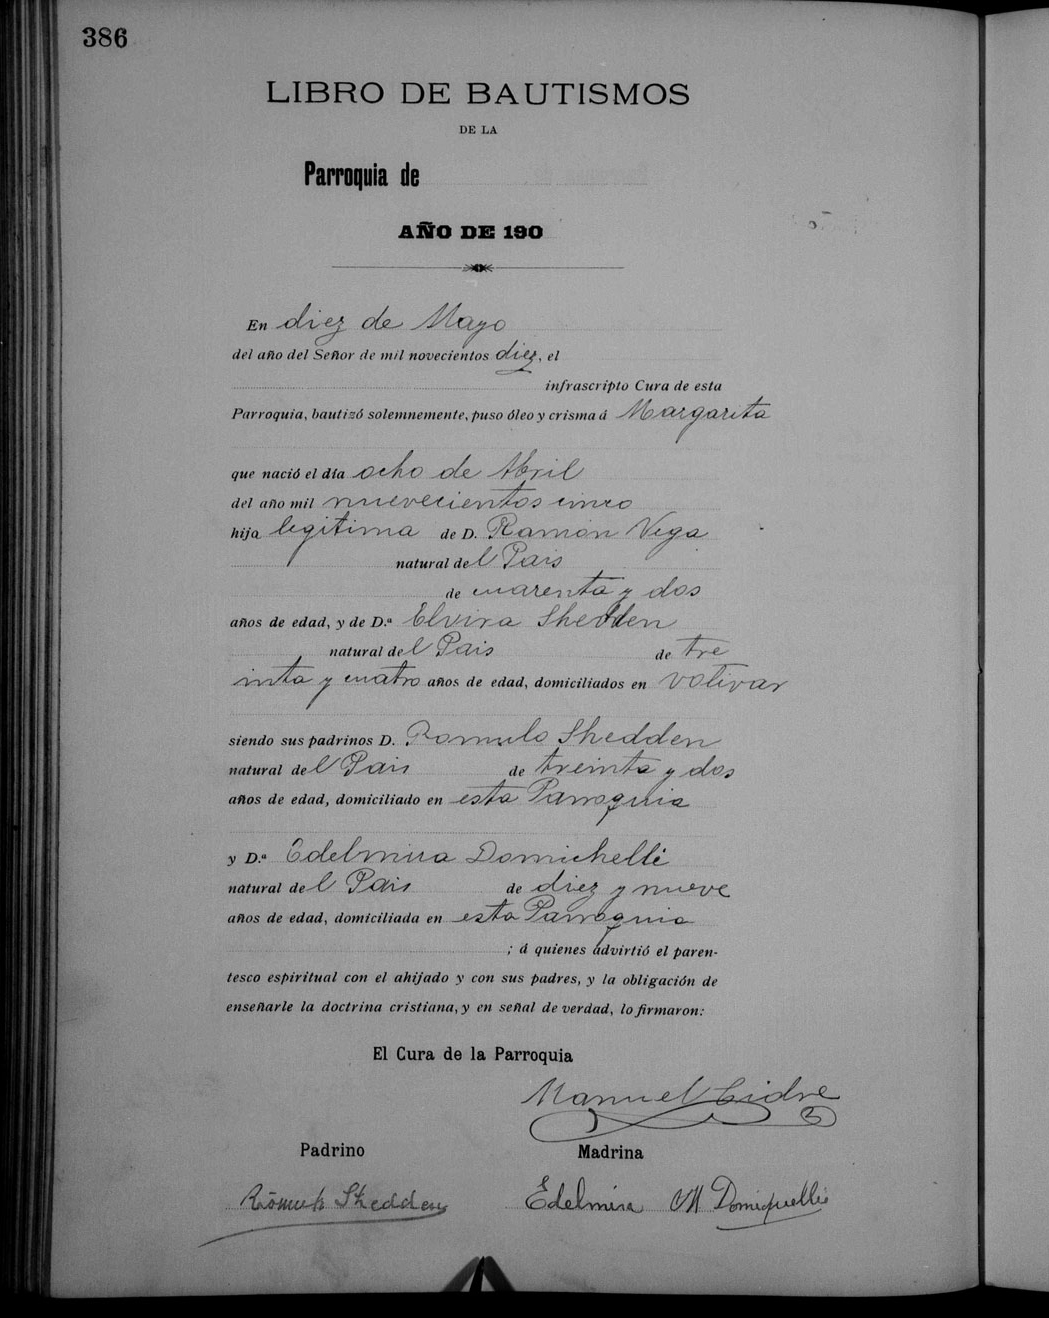 386
LIBRO DE BAUTISMOS
DE LA
Parroquia de
AÑO DE 190
En diez de Mayo
del año del Señor de mil novecientos diez, el
infrascripto Cura de esta
Parroquia, bautizó solemnemente, puso óleo y crisma á Margarita
que nació el día ocho de Abril
del año mil nuevecientos cinco
hija legitima de D. Ramón Vega
natural del Pais
de cuarenta y dos
años de edad, y de D.ª Elvira Shedden
natural del Pais de tre
inta y cuatro años de edad, domiciliados en volivar
siendo sus padrinos D. Romulo Shedden
natural del Pais de treinta y dos
años de edad, domiciliado en esta Parroquia
y D.ª Edelmira Domichelli
natural del Pais de diez y nueve
años de edad, domiciliada en esta Parroquia
; á quienes advirtió el paren-
tesco espiritual con el ahijado y con sus padres, y la obligación de
enseñarle la doctrina cristiana, y en señal de verdad, lo firmaron:
El Cura de la Parroquia
Manuel Cidre
Padrino Madrina
Rómulo Shedden Edelmira M Domiquelli